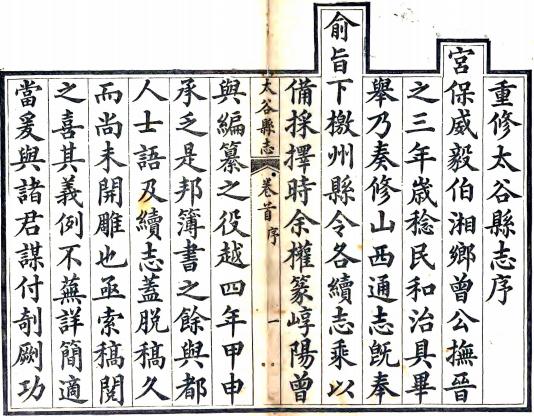 重修太谷縣志序
宮保威毅伯湘鄉曾公撫晉
之三年歲稔民和治具畢
舉乃奏修山西通志既奉
俞旨下檄州縣令各續志乘以
備採擇時余權篆崞陽曾
太谷縣志 卷首 序 一
與編纂之役越四年甲申
承乏是邦簿書之餘與都
人士語及續志蓋脫稿久
而尚未開雕也亟索稿閱
之喜其義例不蕪詳簡適
當爰與諸君謀付剞劂功